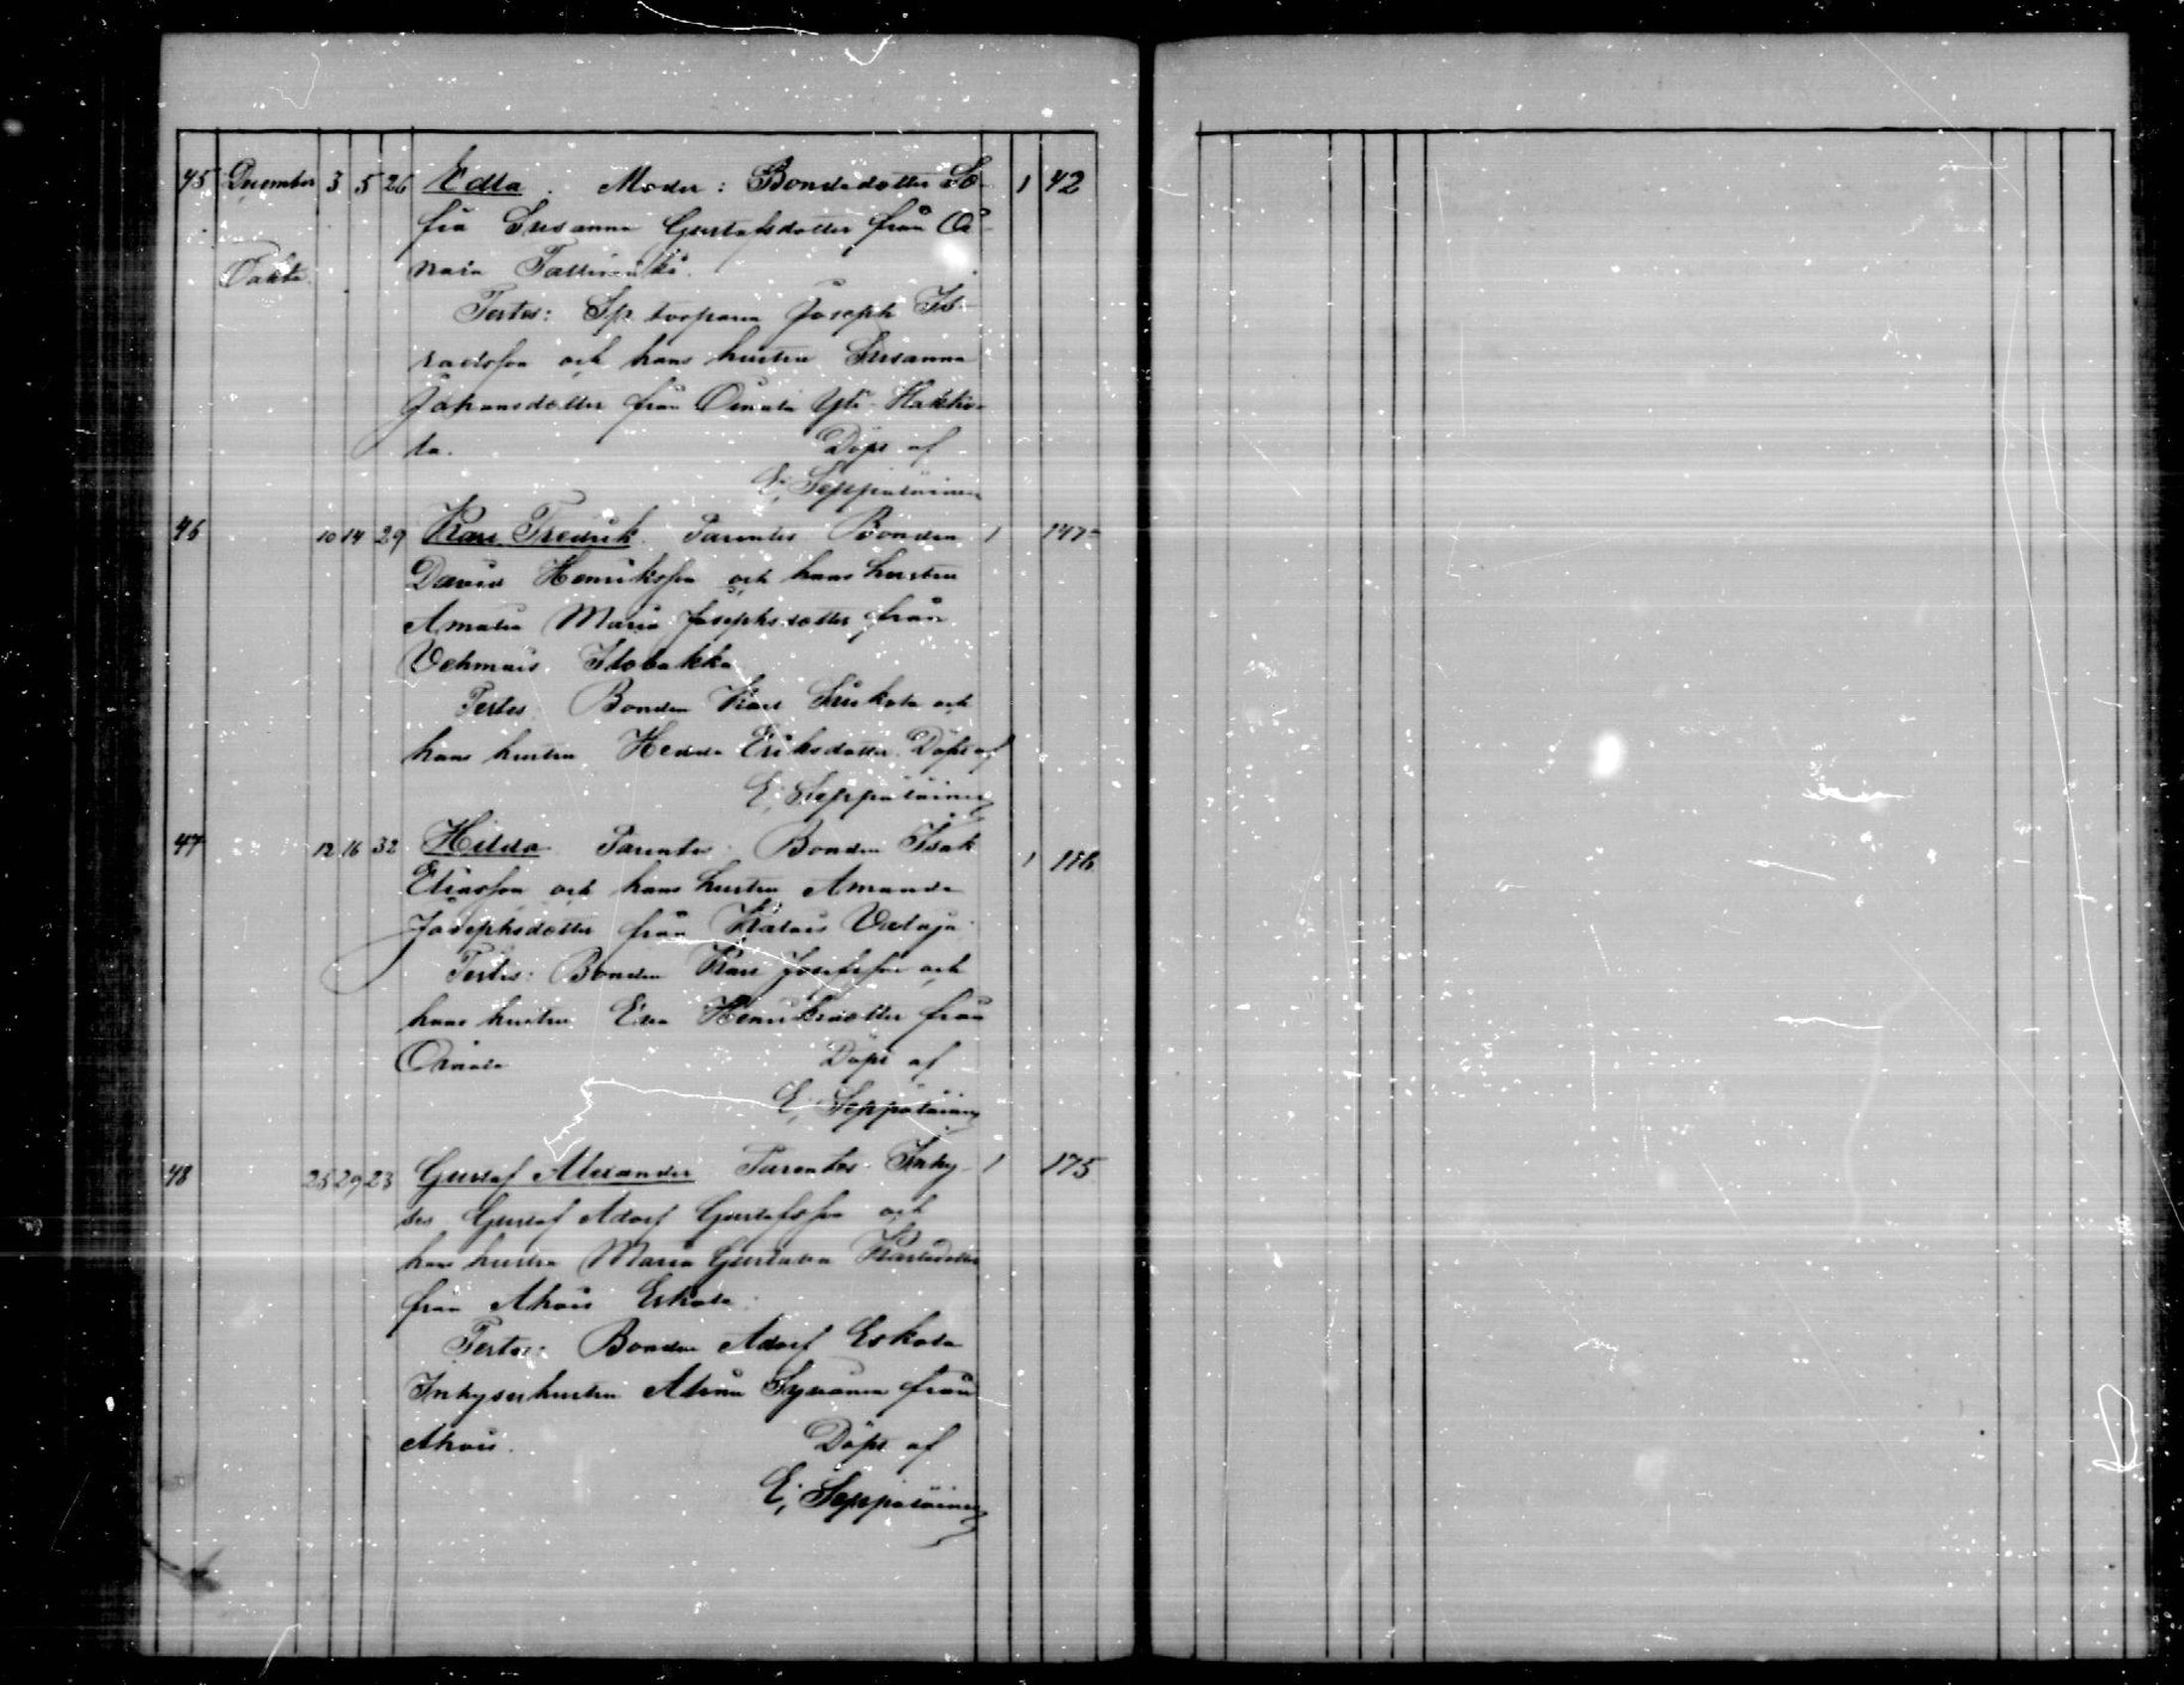 45 December 3 5 26 Edla. Moder: Bondedotter So- 1 42
fia Susanna Gustafsdotter från Oi-
Oäkta nala
Testes: Sp. torparen Joseph Is-
raelsson och hans hustru Susanna
Johansdotter från Oinala Yli-Hakko-
la. Döpt af
E; Seppäläinen
46 10 14 29 Karl Fredrik Parentes Bonden 1 147
David Henriksson och hans hustru
Amalia Maria Josephsdotter från
Vehmais
Testes Bonden Karl och
hans hustru Hedda Eriksdotter. Döpt af
E; Seppäläinen
47 12 16 32 Hilda Parentes Bonden Isak 1
Eliasson och hans hustru Amanda
Josephsdotter från
Testes: Bonden Karl Josefsson och
hans hustru Eva Henriksdotter från
Oinala Döpt af
E; Seppäläinen
48 25 29 23 Gustaf Alexander Parentes Inhy- 1 175
ses Gustaf Adolf Gustafsson och
hans hustru Maria Gustava Karlsdotter
från Ahois Eskola
Testes: Bonden Adolf Eskola
Inhyseshustru från
Ahois. Döpt af
E; Seppäläinen